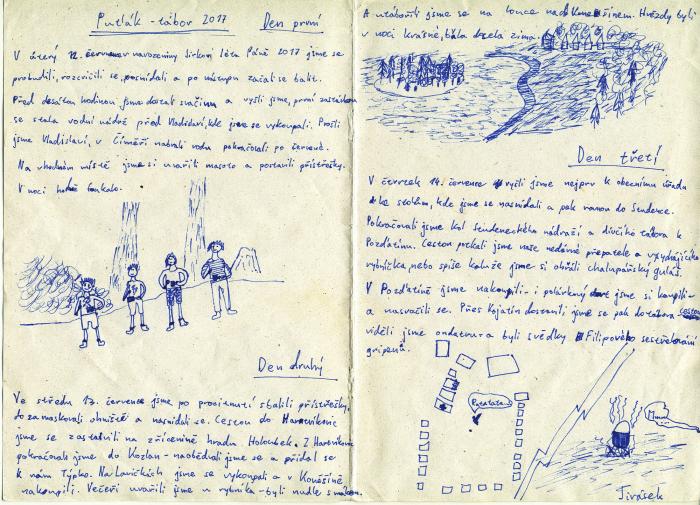 Puťlák - tábor 2017 Den první
V úterý 12. července v navozeniny Sirkový léta Páně 2017 jsme se
probudili, rozcvičili se, posnídali a po nástupu začali se balit.
Před desátou hodinou jsme dostali svačinu a vyšli jsme, první zastávkou
se stala vodní nádrž před Vladislaví, kde jsme se vykoupali. Prošli
jsme Vladislaví, v Číměři nabrali vodu pokračovali po červené.
Na vhodném místě jsme si uvařili masoto a postavili přístřešky.
V noci houkalo.
Den druhý
Ve středu 13. července jsme po procitnutí sbalili přístřešky,
zamaskovali ohniště a nasnídali se. Cestou do Hartvíkovic
jsme se zastavili na zřícenině hradu Holoubek. Z Hartvíkovic
pokračovali jsme do Kozlan - naobědvali jsme se a přidal se
k nám Týpko. Na Lavičkách jsme se vykoupali a v Koněšíně
nakoupili. Večeři uvařili jsme u rybníka - byli nudle s mákem.
A utábořili jsme se na louce nad Kmešínem. Hvězdy byli
v noci krásné, byla docela zima.
Den třetí
V čtvrtek 14. července vyšli jsme nejprv k obecnímu úřadu
ke stolům, kde jsme se nasnídali a pak rovnou do Studence.
Pokračovali jsme kol Studeneckého nádraží a dívčího tábora k
Pozďatínu. Cestou potkali jsme naše nedávné přepatele a u
rybníčka, nebo spíše kaluže jsme si ohřáli chalupářský guláš.
V Pozďatíně jsme nakoupili - i polárkový dort jsme si koupili
a nasvačili se. Přes Kojatín dostali jsme se pak do tábora cestou
viděli jsme ondatru a byli svědky Filipového sestřelování
gripenů.
Patatata...
Mmm...
Jirásek